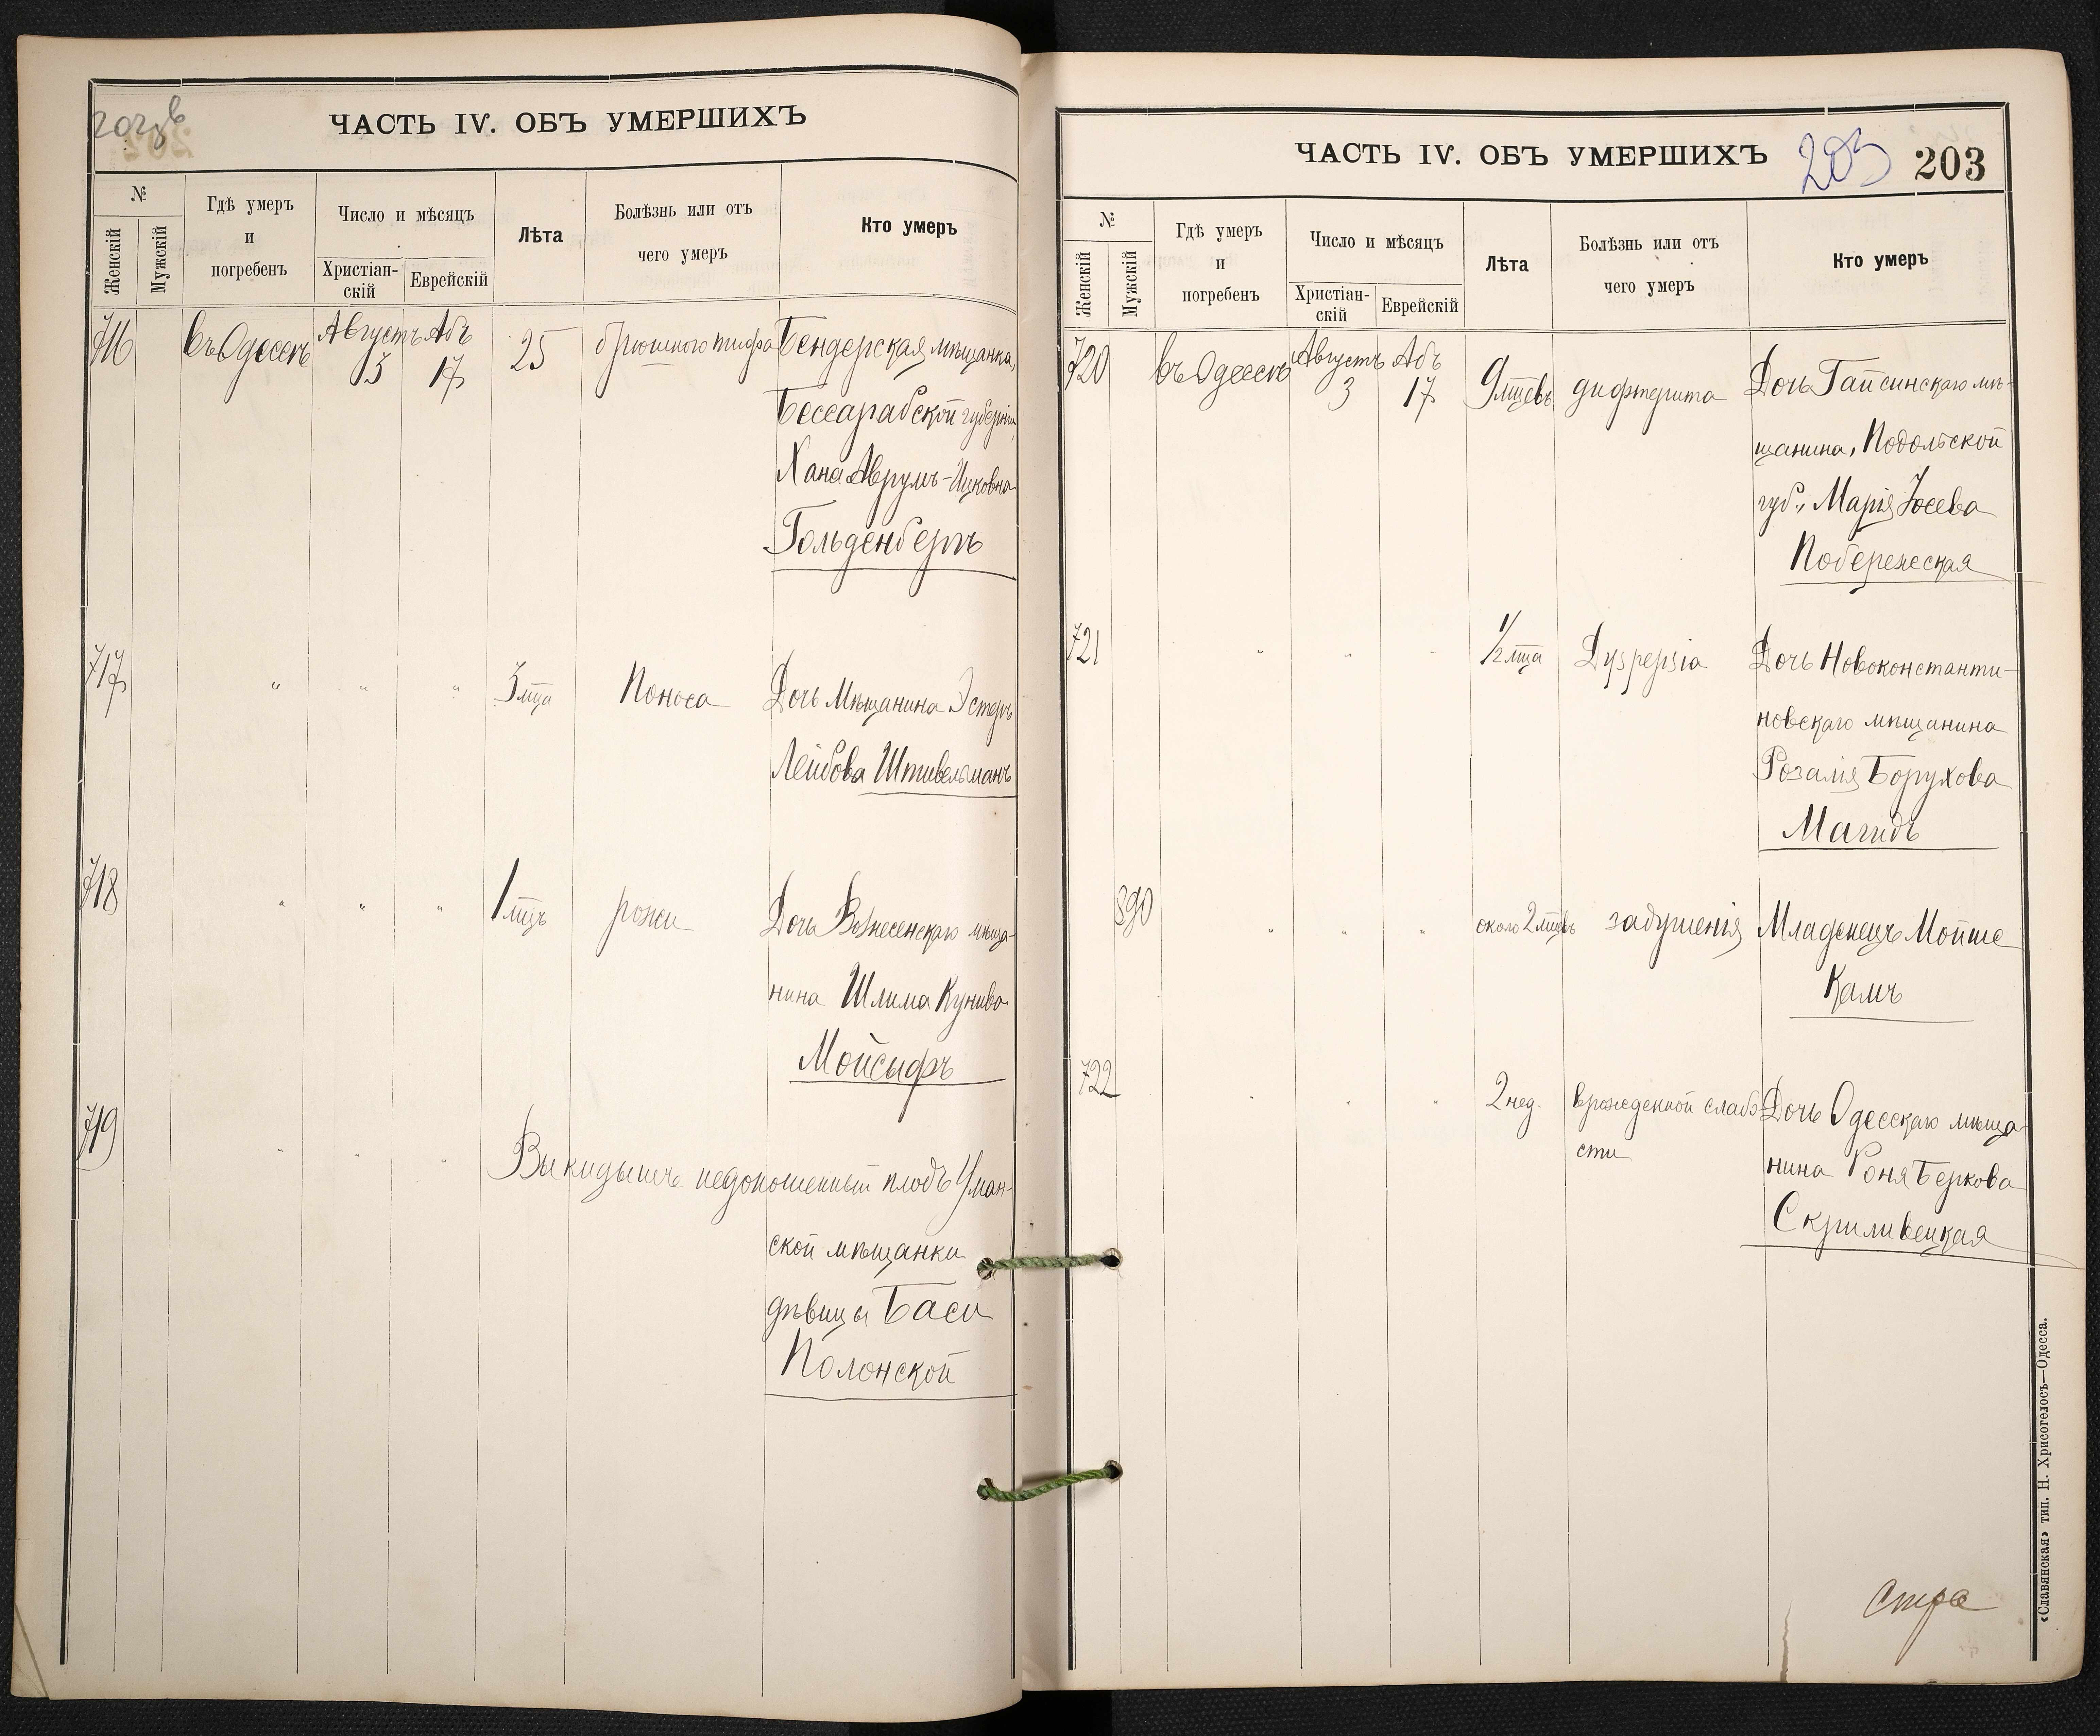 202 об
ЧАСТЬ IV. ОБЪ УМЕРШИХЪ
№
Женскій
Мужскій
Гдѣ умеръ
и
погребенъ
Число и мѣсяцъ
Христіан-
скій
Еврейскій
Лѣта
Болѣзнь или отъ
чего умеръ
Кто умеръ
716 въ Одессѣ Августъ 3 Абъ 17 25 брюшного тифа Бендерская мѣщанка,
Бессарабской губерніи,
Хана Аврумъ-Ицковна
Гольденбергъ
717 " " " 3 мца Поноса Дочь Мѣщанина Эстеръ
Лейбова Штивельманъ
718 " " " 1 мцъ рожи Дочь Вознесенскаго мѣща-
нина Шлима Кунива
Мойсыфъ
719 " " " Выкидышъ недоношенный плодъ Уман-
ской мѣщанки
дѣвицы Баси
Полонской
ЧАСТЬ IV. ОБЪ УМЕРШИХЪ
203
203
№
Женскій
Мужскій
Гдѣ умеръ
и
погребенъ
Число и мѣсяцъ
Христіан-
скій
Еврейскій
Лѣта
Болѣзнь или отъ
чего умеръ
Кто умеръ
720 въ Одессѣ Августъ 3 Абъ 17 9 мцевъ дифтерита Дочь Гайсинскаго мѣ-
щанина, Подольской
губ., Марія Іосева
Побережская
721 " " " 1/2 мца Dyspepsia Дочь Новоконстанти-
новскаго мѣщанина
Розалія Борухова
Магидъ
390 " " " около 2 мцевъ задушенія Младенецъ Мойше
Камъ
722 " " " 2 нед. врожденной слабо- Дочь Одесскаго мѣща-
сти
нина Роня Беркова
Скриливецкая
«Славянская» тип. Н. Хрисогелосъ—Одесса.